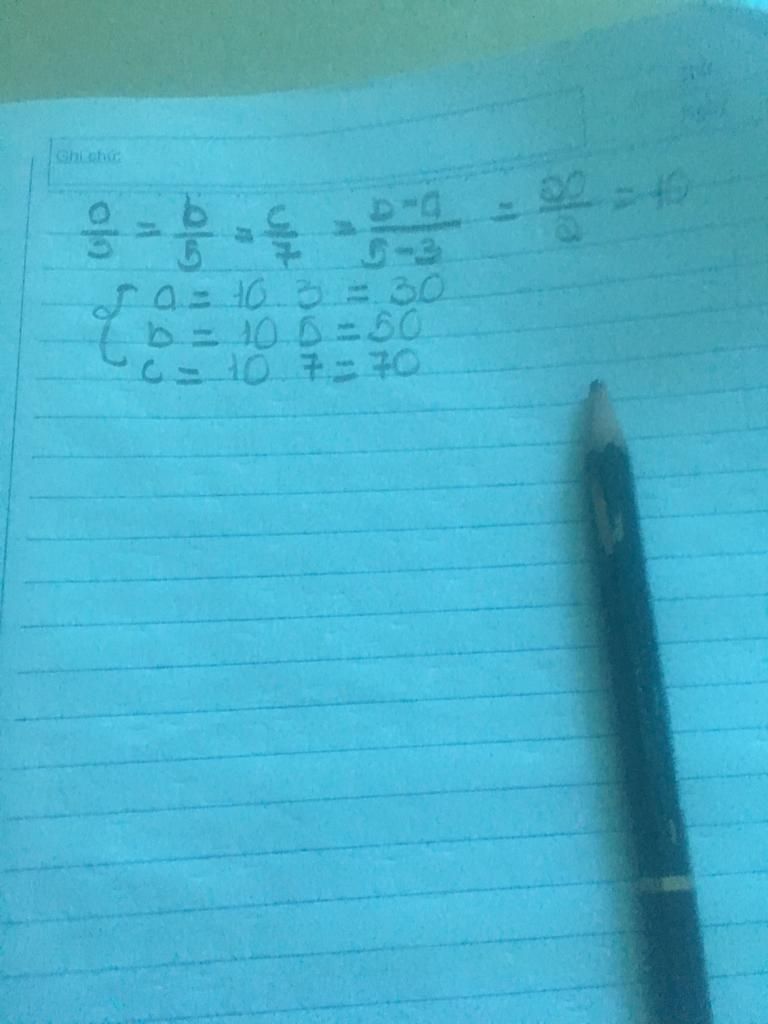 Ghi chú:
a/3 = b/5 = c/7 = b-a/5-3 = 20/2 = 10
{ a = 10 3 = 30
b = 10 5 = 50
c = 10 7 = 70